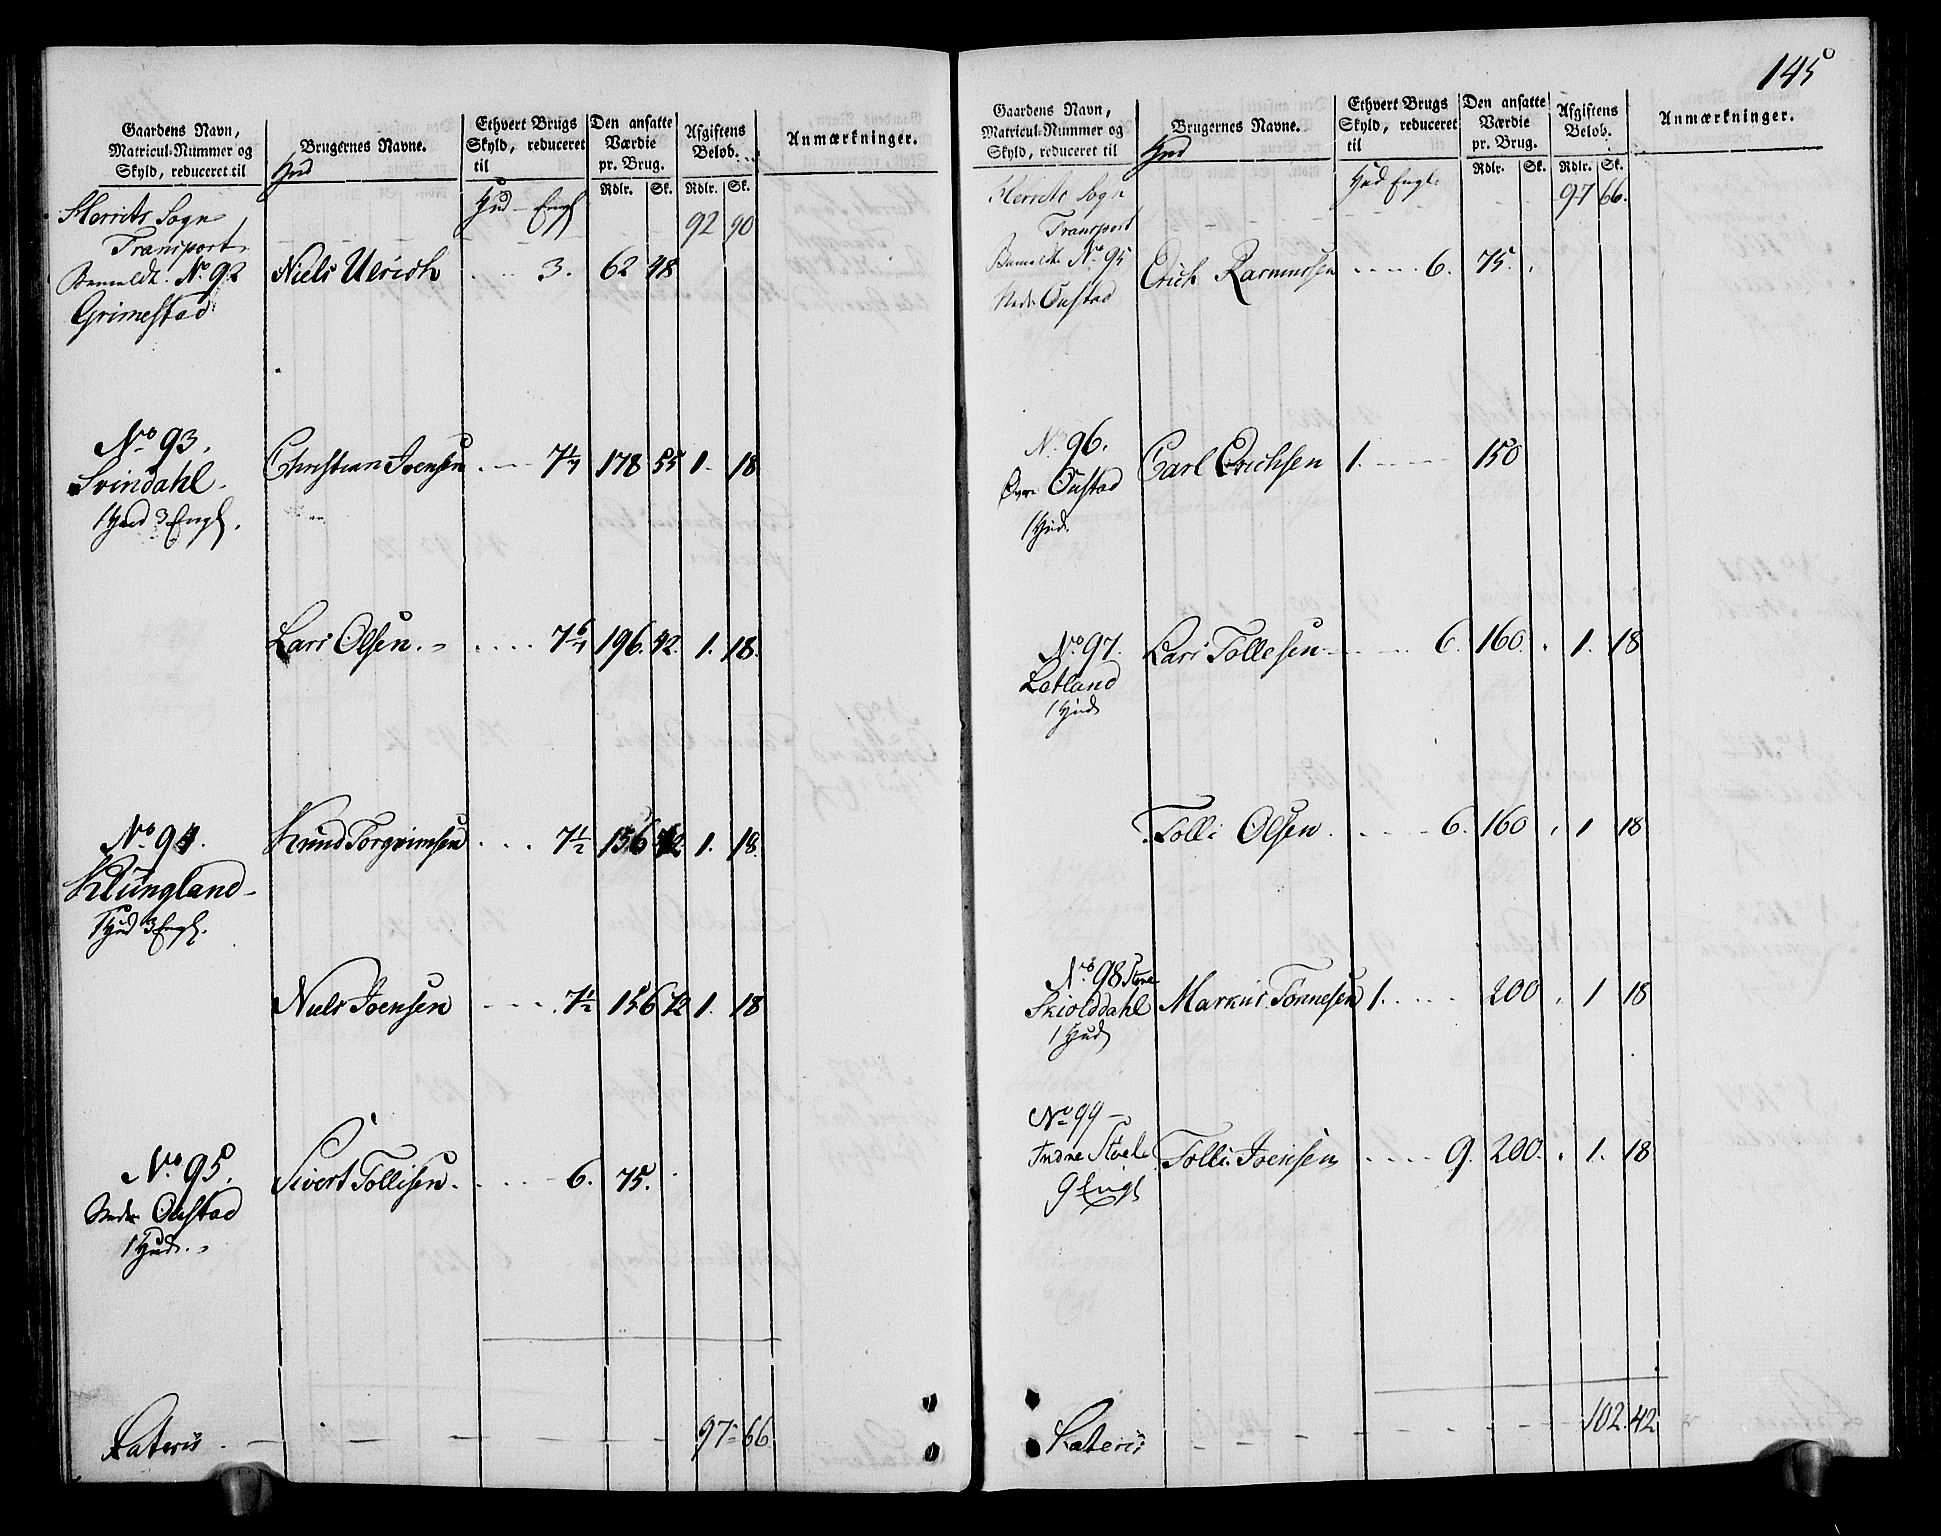 Gaardens Navn, Matricul-Nummer og Skyld, reduceret til Hud
Brugernes Navne.
Ethvert Brugs Skyld, reduceret til
Den ansatte Værdie pr. Brug.
Afgiftens Beløb.
Anmærkninger.
Hud Engl Rdlr. Sk. Rdlr. Sk.
Herrets Sogn
Transport 92 90
No. 92 Niels Ulrich 3. 62 48
Grimestad
No 93. Christian Joensen 7 1/7 178 55 1. 18
Svindahl
1 Hud 3 Engl.
Lars Olsen. 7 6/7 196. 42. 1. 18.
No 94. Knud Torgrimsen 7 1/2 156 42 1. 18.
Klungland
1 Hud 3 Engl.
Niels Joensen 7 1/2 156 42 1. 18
No 95. Sivert Tollisen. 6. 75.
Neder Oustad
1 Hud.
Lateris 97 66
145
Gaardens Navn, Matricul-Nummer og Skyld, reduceret til Hud
Brugernes Navne.
Ethvert Brugs Skyld, reduceret til
Den ansatte Værdie pr. Brug.
Afgiftens Beløb.
Anmærkninger.
Hud Engl. Rdlr. Sk. Rdlr. Sk.
Herrets Sogn 97 66.
Transport
No 95 Erich Rasmussen 6. 75.
Neder Oustad
No 96. Carl Erichsen 1. 150
Øvre Oustad
1 Hud.
No. 97. Lars Tollesen 6. 160. 1. 18
Letland
1 Hud
Tolli Olsen. 6. 160 1 18
No. 98 Store
Skiolddahl Markus Tønnesen 1. 200 1 18
1 Hud
No 99
Indre Støel Tolli Joensen 9. 200. 1. 18
9 Engl
Lateris 102. 42